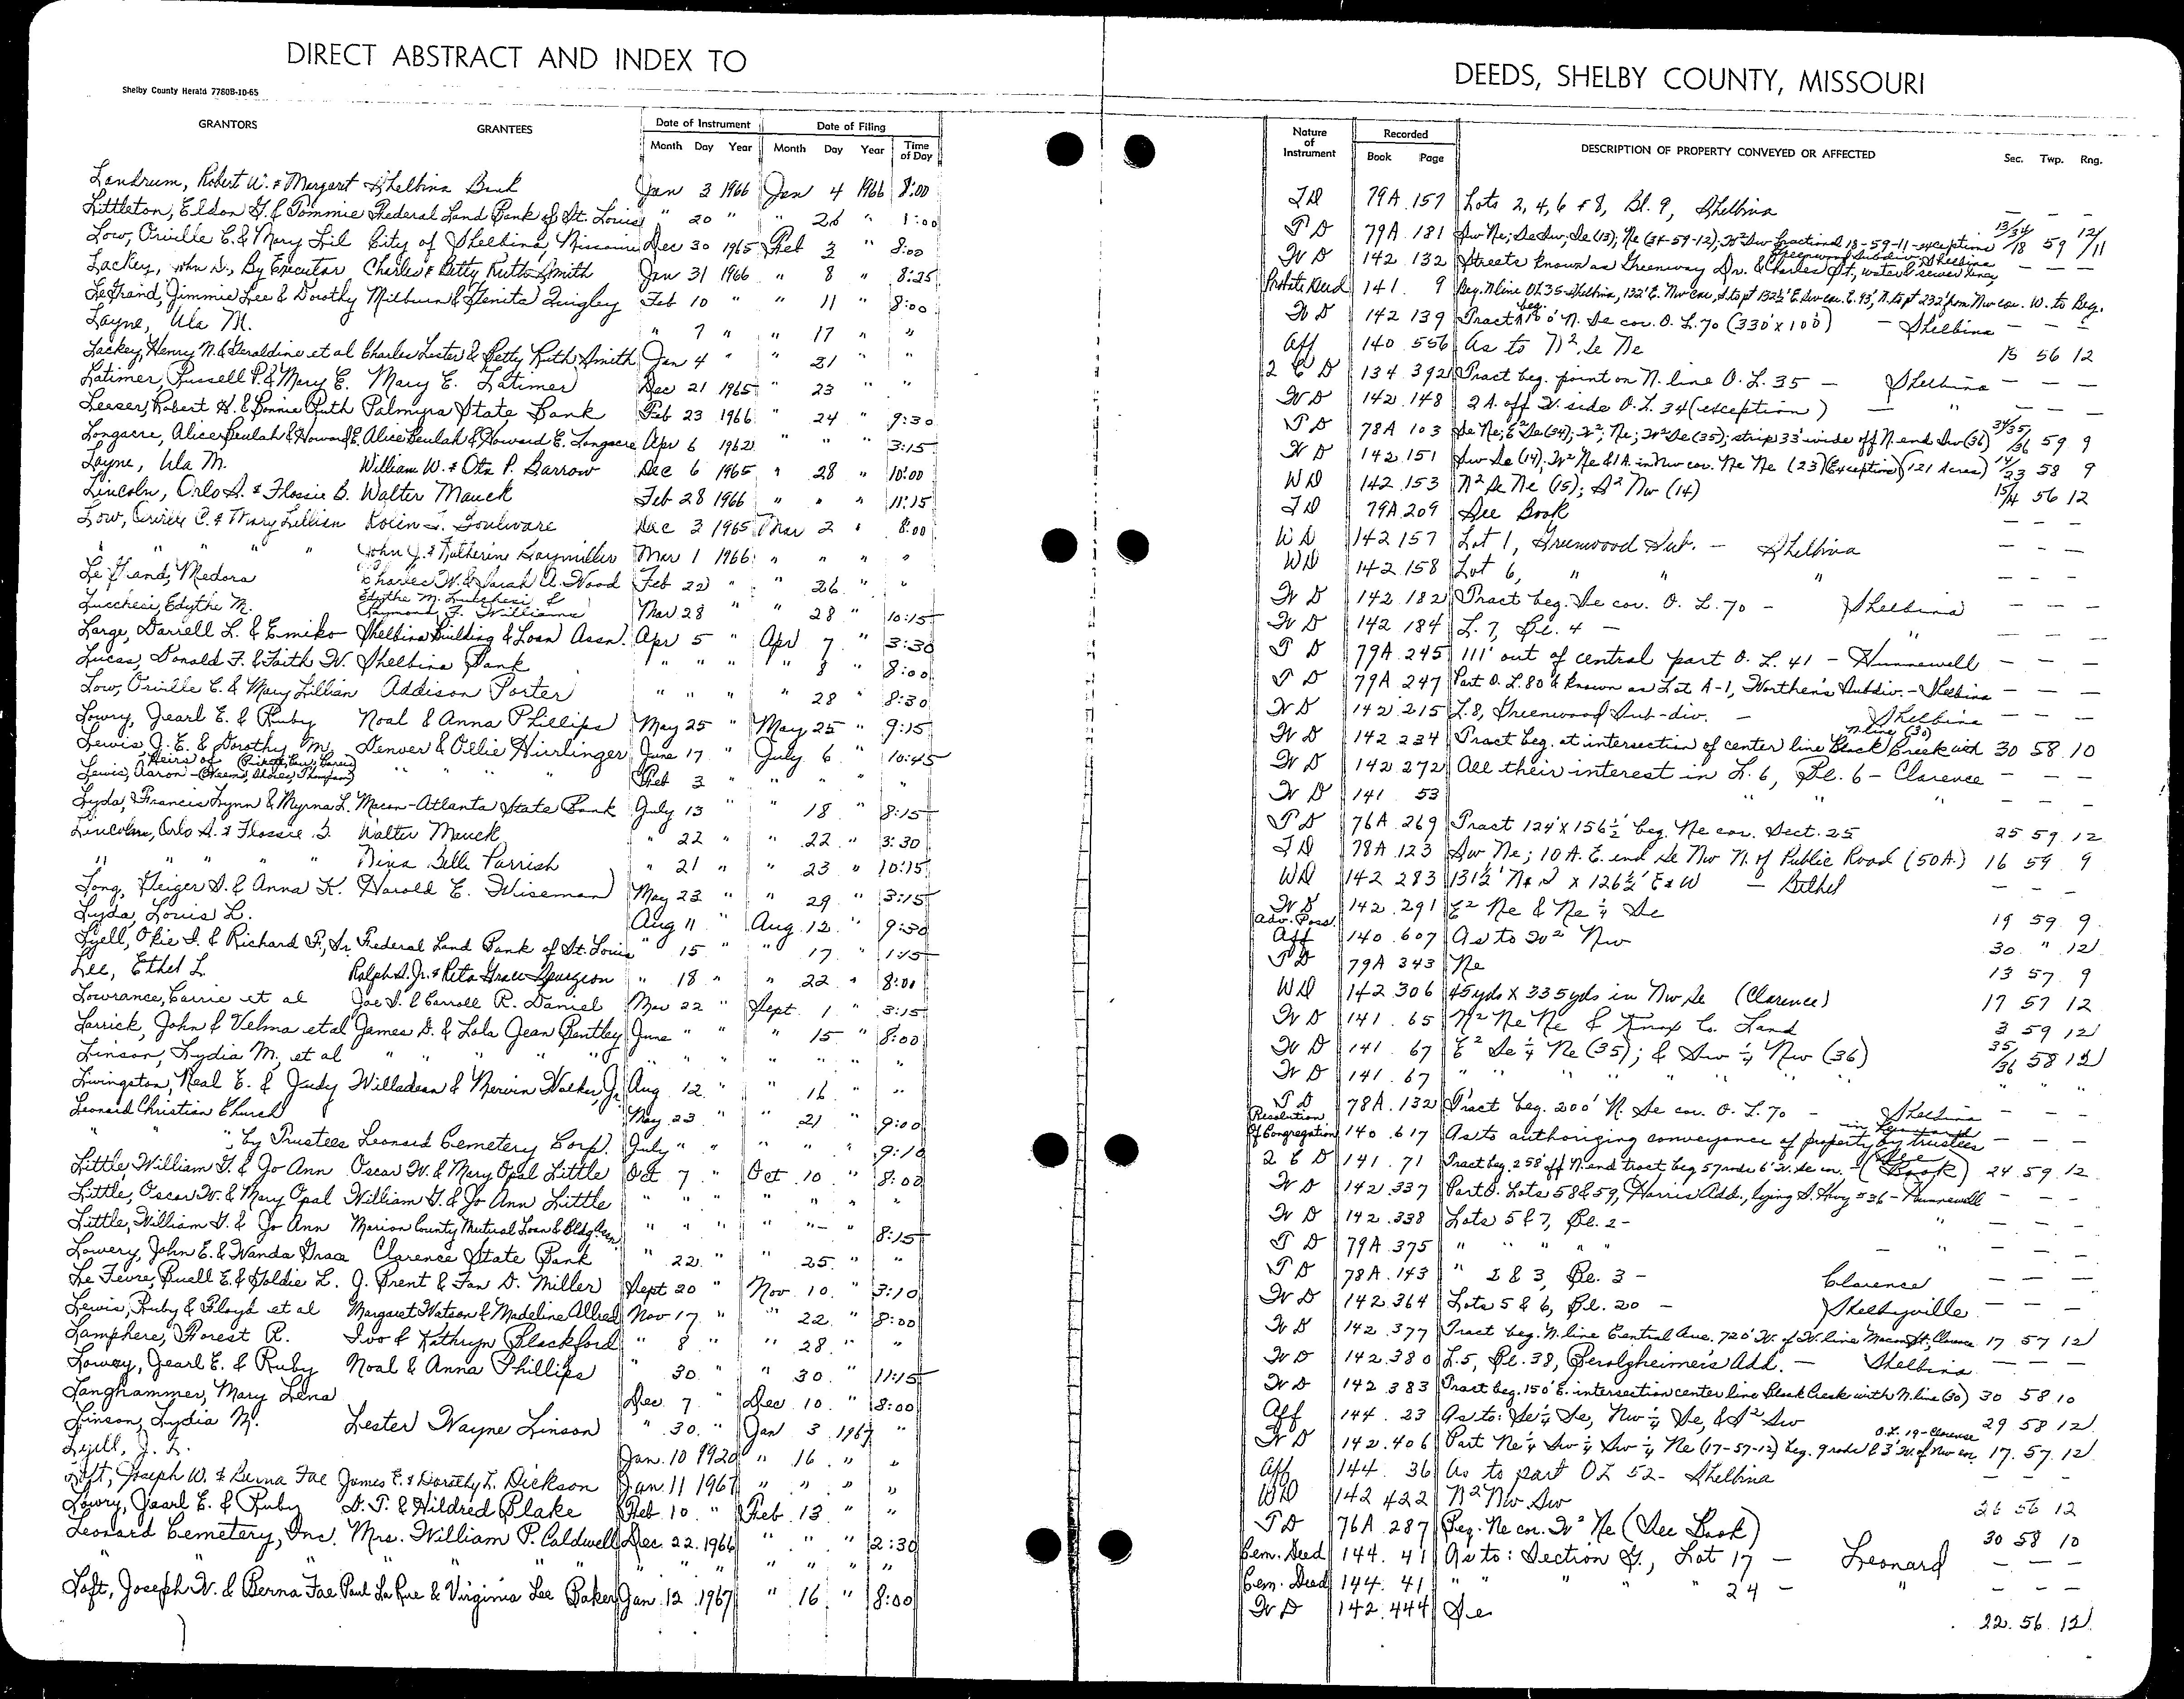 DIRECT ABSTRACT AND INDEX TO
DEEDS, SHELBY COUNTY, MISSOURI
Shelby County Herald 7780B-10-65
GRANTORS GRANTEES Date of Instrument Date of Filing
Month Day Year Month Day Year Time of Day
Nature of Instrument Recorded Book Page DESCRIPTION OF PROPERTY CONVEYED OR AFFECTED Sec. Twp. Rng.
Landrum, Robert W. & Margaret Shelbina Bank Jan 3 1966 Jan 4 1966 8:00
Littleton, Eldon G. & Tommie Federal Land Bank of St. Louis " 20 " " 26 " 1:00
Low, Orville C. & Mary Lil City of Shelbina, Missouri Dec 30 1965 Feb 3 " 8:00
Lackey, John D., By Executor Charles & Betty Ruth Smith Jan 31 1966 " 8 " 8:25
LeGrand, Jimmie Lee & Dorothy Milburn & Genita Quigley Feb 10 " " 11 " 8:00
Layne, Ula M. " 7 " " 17 " "
Lackey, Henry N. & Geraldine et al Charles Lester & Betty Ruth Smith Jan 4 " " 21 " "
Latimer, Russell P. & Mary E. Mary E. Latimer Dec 21 1965 " 23 " "
Leeser, Robert H. & Bonnie Ruth Palmyra State Bank Feb 23 1966 " 24 " 9:30
Longacre, Alice Beulah & Howard E. Alice Beulah & Howard E. Longacre Apr 6 1962 " " " 3:15
Layne, Ula M. William W. & Ota P. Barrow Dec 6 1965 " 28 " 10:00
Lincoln, Orlo A. & Flossie B. Walter Mauck Feb 28 1966 " " " 11:15
Low, Orville C. & Mary Lillian Rolin L. Boulware Dec 3 1965 Mar 2 " 8:00
" " " " John J. & Katherine Mar 1 1966 " " " "
LeGrand, Medora Charles W. & Sarah A. Wood Feb 22 " " 26 " "
Lucchesi, Edythe M. Edythe M. Lucchesi & Raymond F. Williams Mar 28 " " 28 " 10:15
Large, Darrell L. & Emiko Shelbina Building & Loan Assn. Apr 5 " Apr 7 " 3:30
Lucas, Donald F. & Faith W. Shelbina Bank " " " " 8 " 8:00
Low, Orville C. & Mary Lillian Addison Porter " " " " 28 " 8:30
Lowry, Jearl E. & Ruby Noal & Anna Phillips May 25 " May 25 " 9:15
Lewis, J. E. & Dorothy M. Denver & Ollie Hierlinger June 17 " July 6 " 10:45
Lewis, Aaron - Heirs of " " " " Feb 3 " " " " "
Lyda, Francis Lynn & Myrna L. Macon-Atlanta State Bank July 13 " " 18 " 8:15
Lincoln, Orlo A. & Flossie B. Walter Mauck " 22 " " 22 " 3:30
" " " " Nina Belle Parrish " 21 " " 23 " 10:15
Long, Geiger S. & Anna K. Harold E. Wiseman May 23 " " 29 " 3:15
Lyda, Louis L. Aug 11 " Aug 12 " 9:30
Lyell, Okie I. & Richard F., Sr. Federal Land Bank of St. Louis " 15 " " 17 " 1:15
Lee, Ethel L. Ralph S. Jr. & Reta Grace Spurgeon " 18 " " 22 " 8:00
Lowrance, Carrie et al Joe S. & Carroll R. Daniel Mar 22 " Sept. 1 " 3:15
Larrick, John & Velma et al James D. & Lola Jean Bentley June " " " 15 " 8:00
Linson, Lydia M., et al " " " " " " " " " " "
Livingston, Neal E. & Judy Willadean & Mervin Walker, Jr. Aug. 12 " " 16 " "
Leonard Christian Church May 23 " " 21 " 9:00
" " ", by Trustees Leonard Cemetery Corp. July " " " " " 9:10
Little, William G. & Jo Ann Oscar W. & Mary Opal Little Oct 7 " Oct 10 " 8:00
Little, Oscar W. & Mary Opal William G. & Jo Ann Little " " " " " " "
Little, William G. & Jo Ann Marion County Mutual Loan & Bldg. Assn. " " " " " " 8:15
Lowery, John E. & Wanda Grace Clarence State Bank " 22 " " 25 " "
Le Fevre, Buell E. & Goldie L. J. Brent & Fan D. Miller Sept 20 " Nov. 10 " 3:10
Lewis, Ruby & Floyd et al Margaret Watson & Madeline Allred Nov 17 " " 22 " 8:00
Lamphere, Forest R. Ivo & Kathryn Blackford " 8 " " 28 " "
Lowry, Jearl E. & Ruby Noal & Anna Phillips " 30 " " 30 " 11:15
Langhammer, Mary Lena Dec. 7 " Dec. 10 " 8:00
Linson, Lydia M. Lester Wayne Linson " 30 " Jan 3 1967 "
Lyell, J. L. Jan. 10 1920 " 16 " "
Loft, Joseph W. & Berna Fae James E. & Dorothy L. Dickson Jan. 11 1967 " " " "
Lowry, Jearl E. & Ruby D. T. & Hildred Blake Feb. 10 " Feb. 13 " "
Leonard Cemetery, Inc. Mrs. William P. Caldwell Dec. 22 1966 " " " 2:30
" " " " " " " "
Loft, Joseph W. & Berna Fae Paul La Rue & Virginia Lee Baker Jan. 12 1967 " 16 " 8:00
TD 79A 157 Lots 2, 4, 6 & 8, Bl. 9, Shelbina — — —
TD 79A 181 Sw Ne; Se Sw; Se (13); Ne (34-59-12); W² Sw fractional 18-59-11 - exceptions 13/34/18 59 12/11
WD 142 132 Streets known as Greenway Dr. & Charles St., water & sewer lines, Greenwood Subdiv. Shelbina — — —
Probate Deed 141 9 Beg. N line OL 35 Shelbina, 132' E. Nw cor., S to pt 132½' E. Sw cor. E. 93', N. to pt 232' from Nw cor. W. to Beg.
WD 142 139 Tract beg. 100' N. Se cor. O. L. 70 (330' x 100') — Shelbina — — —
Aff 140 556 As to N² Se Ne 15 56 12
2 C D 134 392 Tract beg. point on N. line O. L. 35 — Shelbina — — —
WD 142 148 2 A. off W. side O. L. 34 (exception) — " — — —
TD 78A 103 Se Ne; E² Se (34); W²; Ne; W² Se (35); strip 33' wide off N. end Sw (36) 34/35/36 59 9
WD 142 151 Sw Se (14); W² Ne & 1 A. in Nw cor. Ne Ne (23) (Exception) (121 Acres) 14/23 58 9
WD 142 153 N² Se Ne (15); S² Nw (14) 15/14 56 12
TD 79A 209 See Book — — —
WD 142 157 Lot 1, Greenwood Sub. — Shelbina — — —
WD 142 158 Lot 6, " " " — — —
WD 142 182 Tract beg. Se cor. O. L. 70 — Shelbina — — —
WD 142 184 L. 7, Bl. 4 — " — — —
TD 79A 245 111' out of central part O. L. 41 — Hunnewell — — —
TD 79A 247 Part O. L. 80 & known as Lot A-1, Worthen's Subdiv. - Shelbina — — —
WD 142 215 L. 8, Greenwood Sub-div. — Shelbina — — —
WD 142 234 Tract beg. at intersection of center line Black Creek with N line (30) 30 58 10
WD 142 272 All their interest in L. 6, Bl. 6 - Clarence — — —
WD 141 53 " " " — — —
TD 76A 269 Tract 124' x 156½' beg. Ne cor. Sect. 25 25 59 12
TD 78A 123 Sw Ne; 10 A. E. end Se Nw N. of Public Road (50A) 16 59 9
WD 142 283 131½' N & S x 126½' E & W — Bethel — — —
WD 142 291 E² Ne & Ne ¼ Se 19 59 9
Adv. Poss. Aff 140 607 As to W² Nw 30 " 12
TD 79A 343 Ne 13 57 9
WD 142 306 45 yds x 335 yds in Nw Se (Clarence) 17 57 12
WD 141 65 N² Ne Ne & Knox Co. Land 3 59 12
WD 141 67 E² Se ¼ Ne (35); & Sw ¼ Nw (36) 35/36 58 12
WD 141 67 " " " " " " " " "
TD 78A 132 Tract beg. 200' N. Se cor. O. L. 70 — Shelbina — — —
Resolution Of Congregation 140 617 As to authorizing conveyance of property in Leonard by trustees — — —
2 C D 141 71 Tract beg. 258' off N. end tract, beg. 57 rods 6' W. Se cor. - (See Book) 24 59 12
WD 142 337 Part O. Lots 58 & 59, Harris Add., lying S. Hwy #36 - Hunnewell — — —
WD 142 338 Lots 5 & 7, Bl. 2 — " — — —
TD 79A 375 " " " " " — " — — —
TD 78A 143 " 2 & 3, Bl. 3 — Clarence — — —
WD 142 364 Lots 5 & 6, Bl. 20 — Shelbyville — — —
WD 142 377 Tract beg. N. line Central Ave. 720' W. of W. line Macon St., Clarence 17 57 12
WD 142 380 L. 5, Bl. 38, Berolzheimer's Add. — Shelbina — — —
WD 142 383 Tract beg. 150' E. intersection center line Black Creek with N. line (30) 30 58 10
Aff 144 23 As to: Se ¼ Se, Nw ¼ Se, & S² Sw 29 58 12
WD 142 406 Part Ne ¼ Sw ¼ Sw ¼ Ne (17-57-12) beg. 9 rods & 3' W. of Nw cor. O. L. 19 - Clarence 17 57 12
Aff 144 36 As to part OL 52 - Shelbina — — —
WD 142 422 N² Nw Sw 26 56 12
TD 76A 287 Beg. Ne cor. W² Ne (See Book) 30 58 10
Cem. Deed 144 41 As to: Section G., Lot 17 — Leonard — — —
Cem. Deed 144 41 " " " " 24 — " — — —
WD 142 444 Se 22 56 12